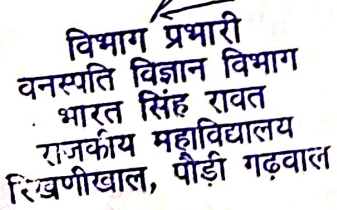 विभाग प्रभारी
वनस्पति विज्ञान विभाग
भारत सिंह रावत
राजकीय महाविद्यालय
रिखणीखाल, पौड़ी गढ़वाल